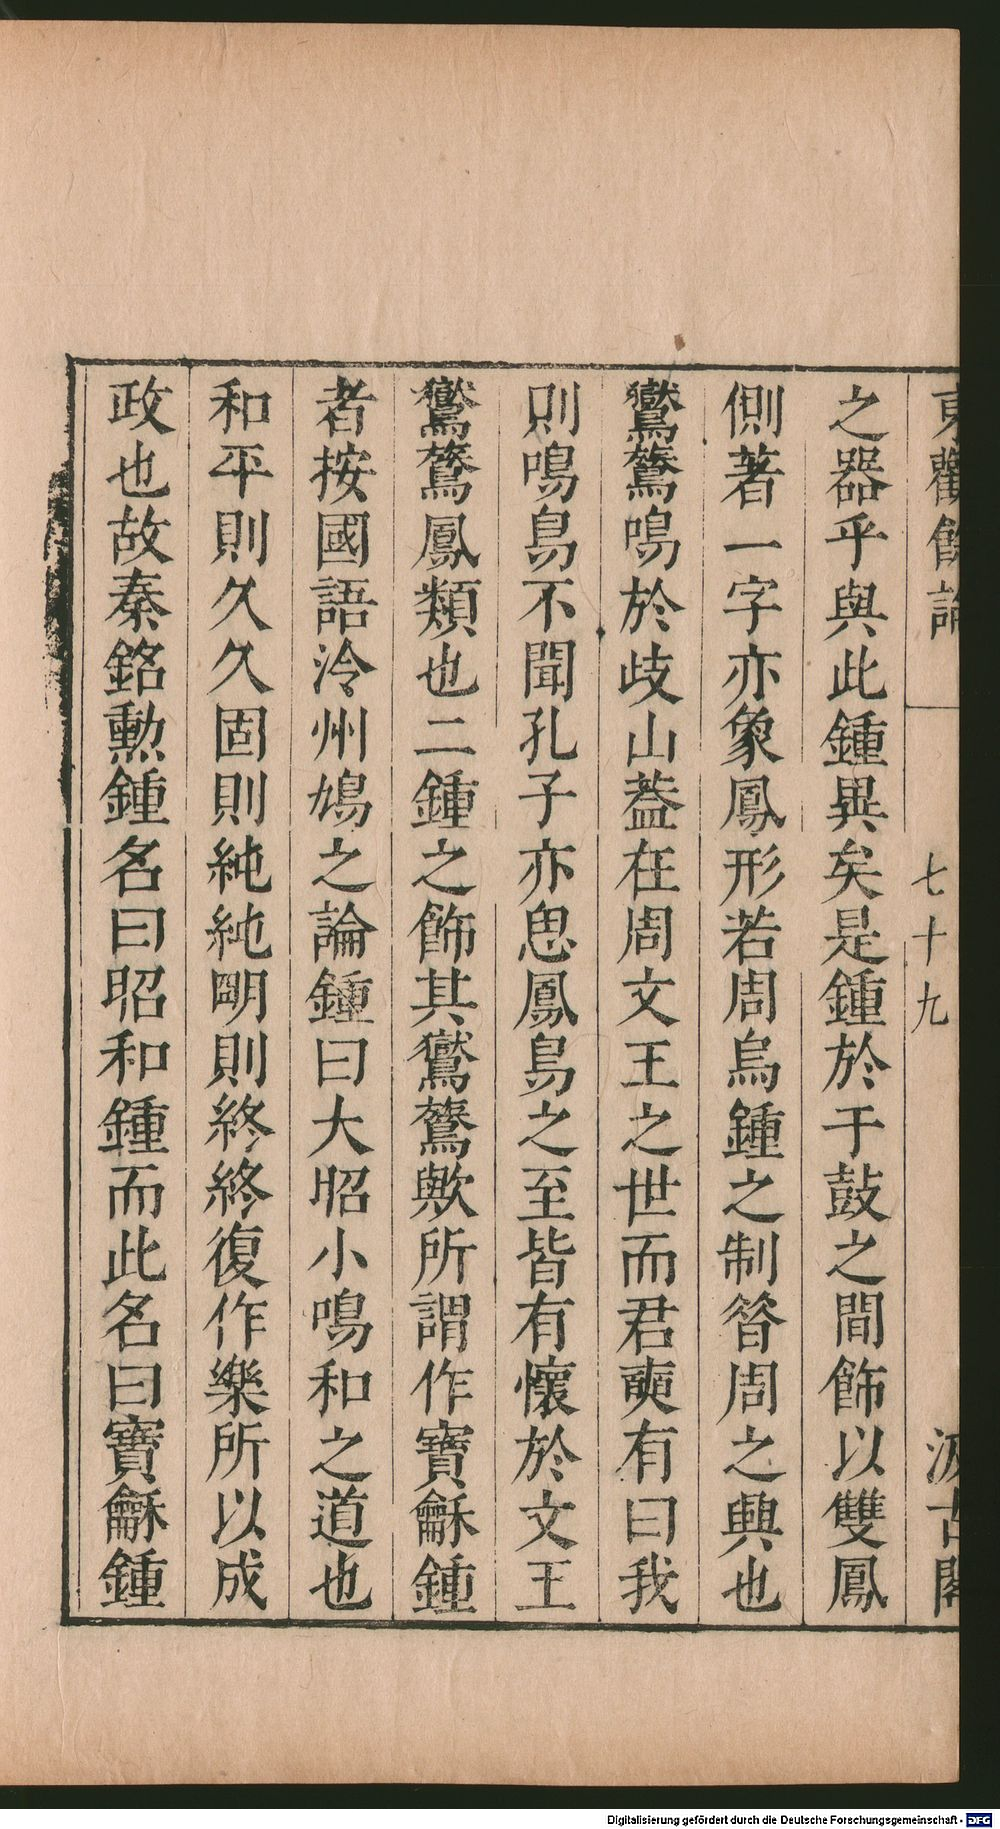 東觀餘論
七十九
汲古閣
之器乎與此鍾異矣是鍾於于鼓之間飾以雙鳳
側著一字亦象鳳形若周烏鍾之制昝周之興也
鸑鷟鳴於歧山葢在周文王之世而君奭有曰我
則鳴鳥不聞孔子亦思鳳鳥之至皆有懷於文王
鸑鷟鳳類也二鍾之飾其鸑鷟歟所謂作寶龢鍾
者按國語泠州鳩之論鍾曰大昭小鳴和之道也
和平則久久固則純純眀則終終復作樂所以成
政也故秦銘勲鍾名曰昭和鍾而此名曰寶龢鍾
Digitalisierung gefördert durch die Deutsche Forschungsgemeinschaft - DFG